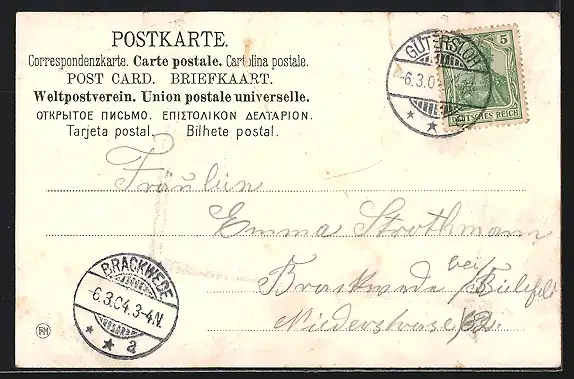 POSTKARTE.
Correspondenzkarte. Carte postale. Cartolina postale.
POST CARD. BRIEFKAART.
Weltpostverein. Union postale universelle.
ОТКРЫТОЕ ПИСЬМО. ΕΠΙΣΤΟΛΙΚΟΝ ΔΕΛΤΑΡΙΟΝ.
Tarjeta postal. Bilhete postal.
GÜTERSLOH
-6.3.04
5
DEUTSCHES REICH
Fräulein
Emma Strothmann
Brackwede bei Bielefeld
Niederstrasse 62.
BRACKWEDE
-6.3.04.3-4N.
* * a